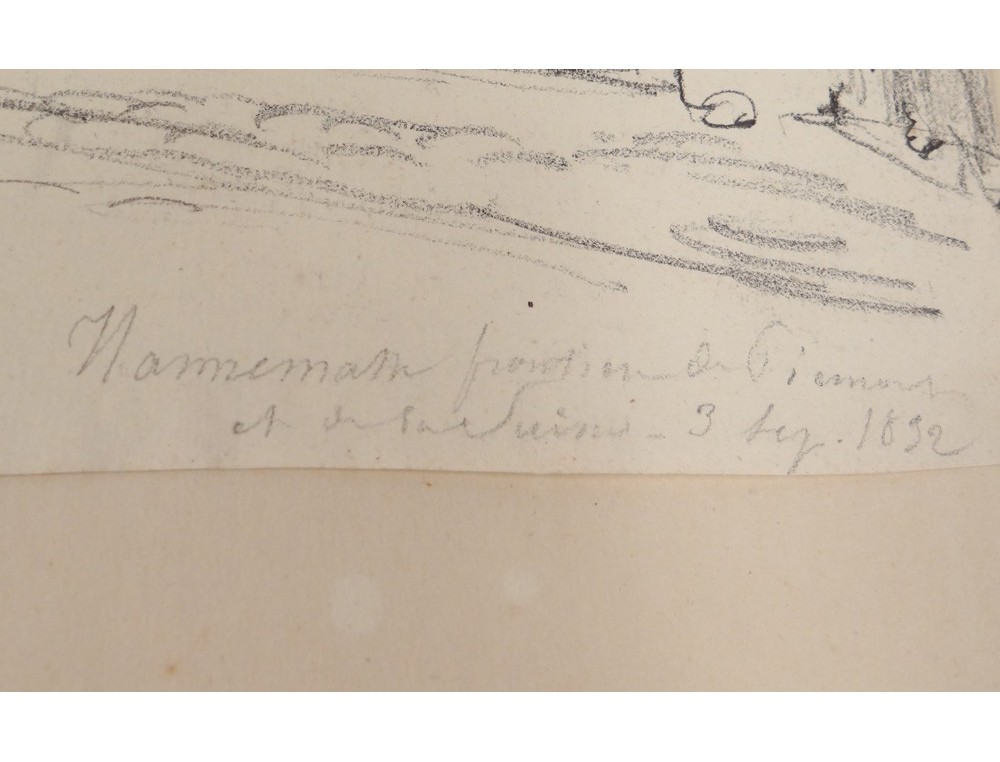 Hannematt frontière de Piemont
et de la Suisse - 3 sep. 1832